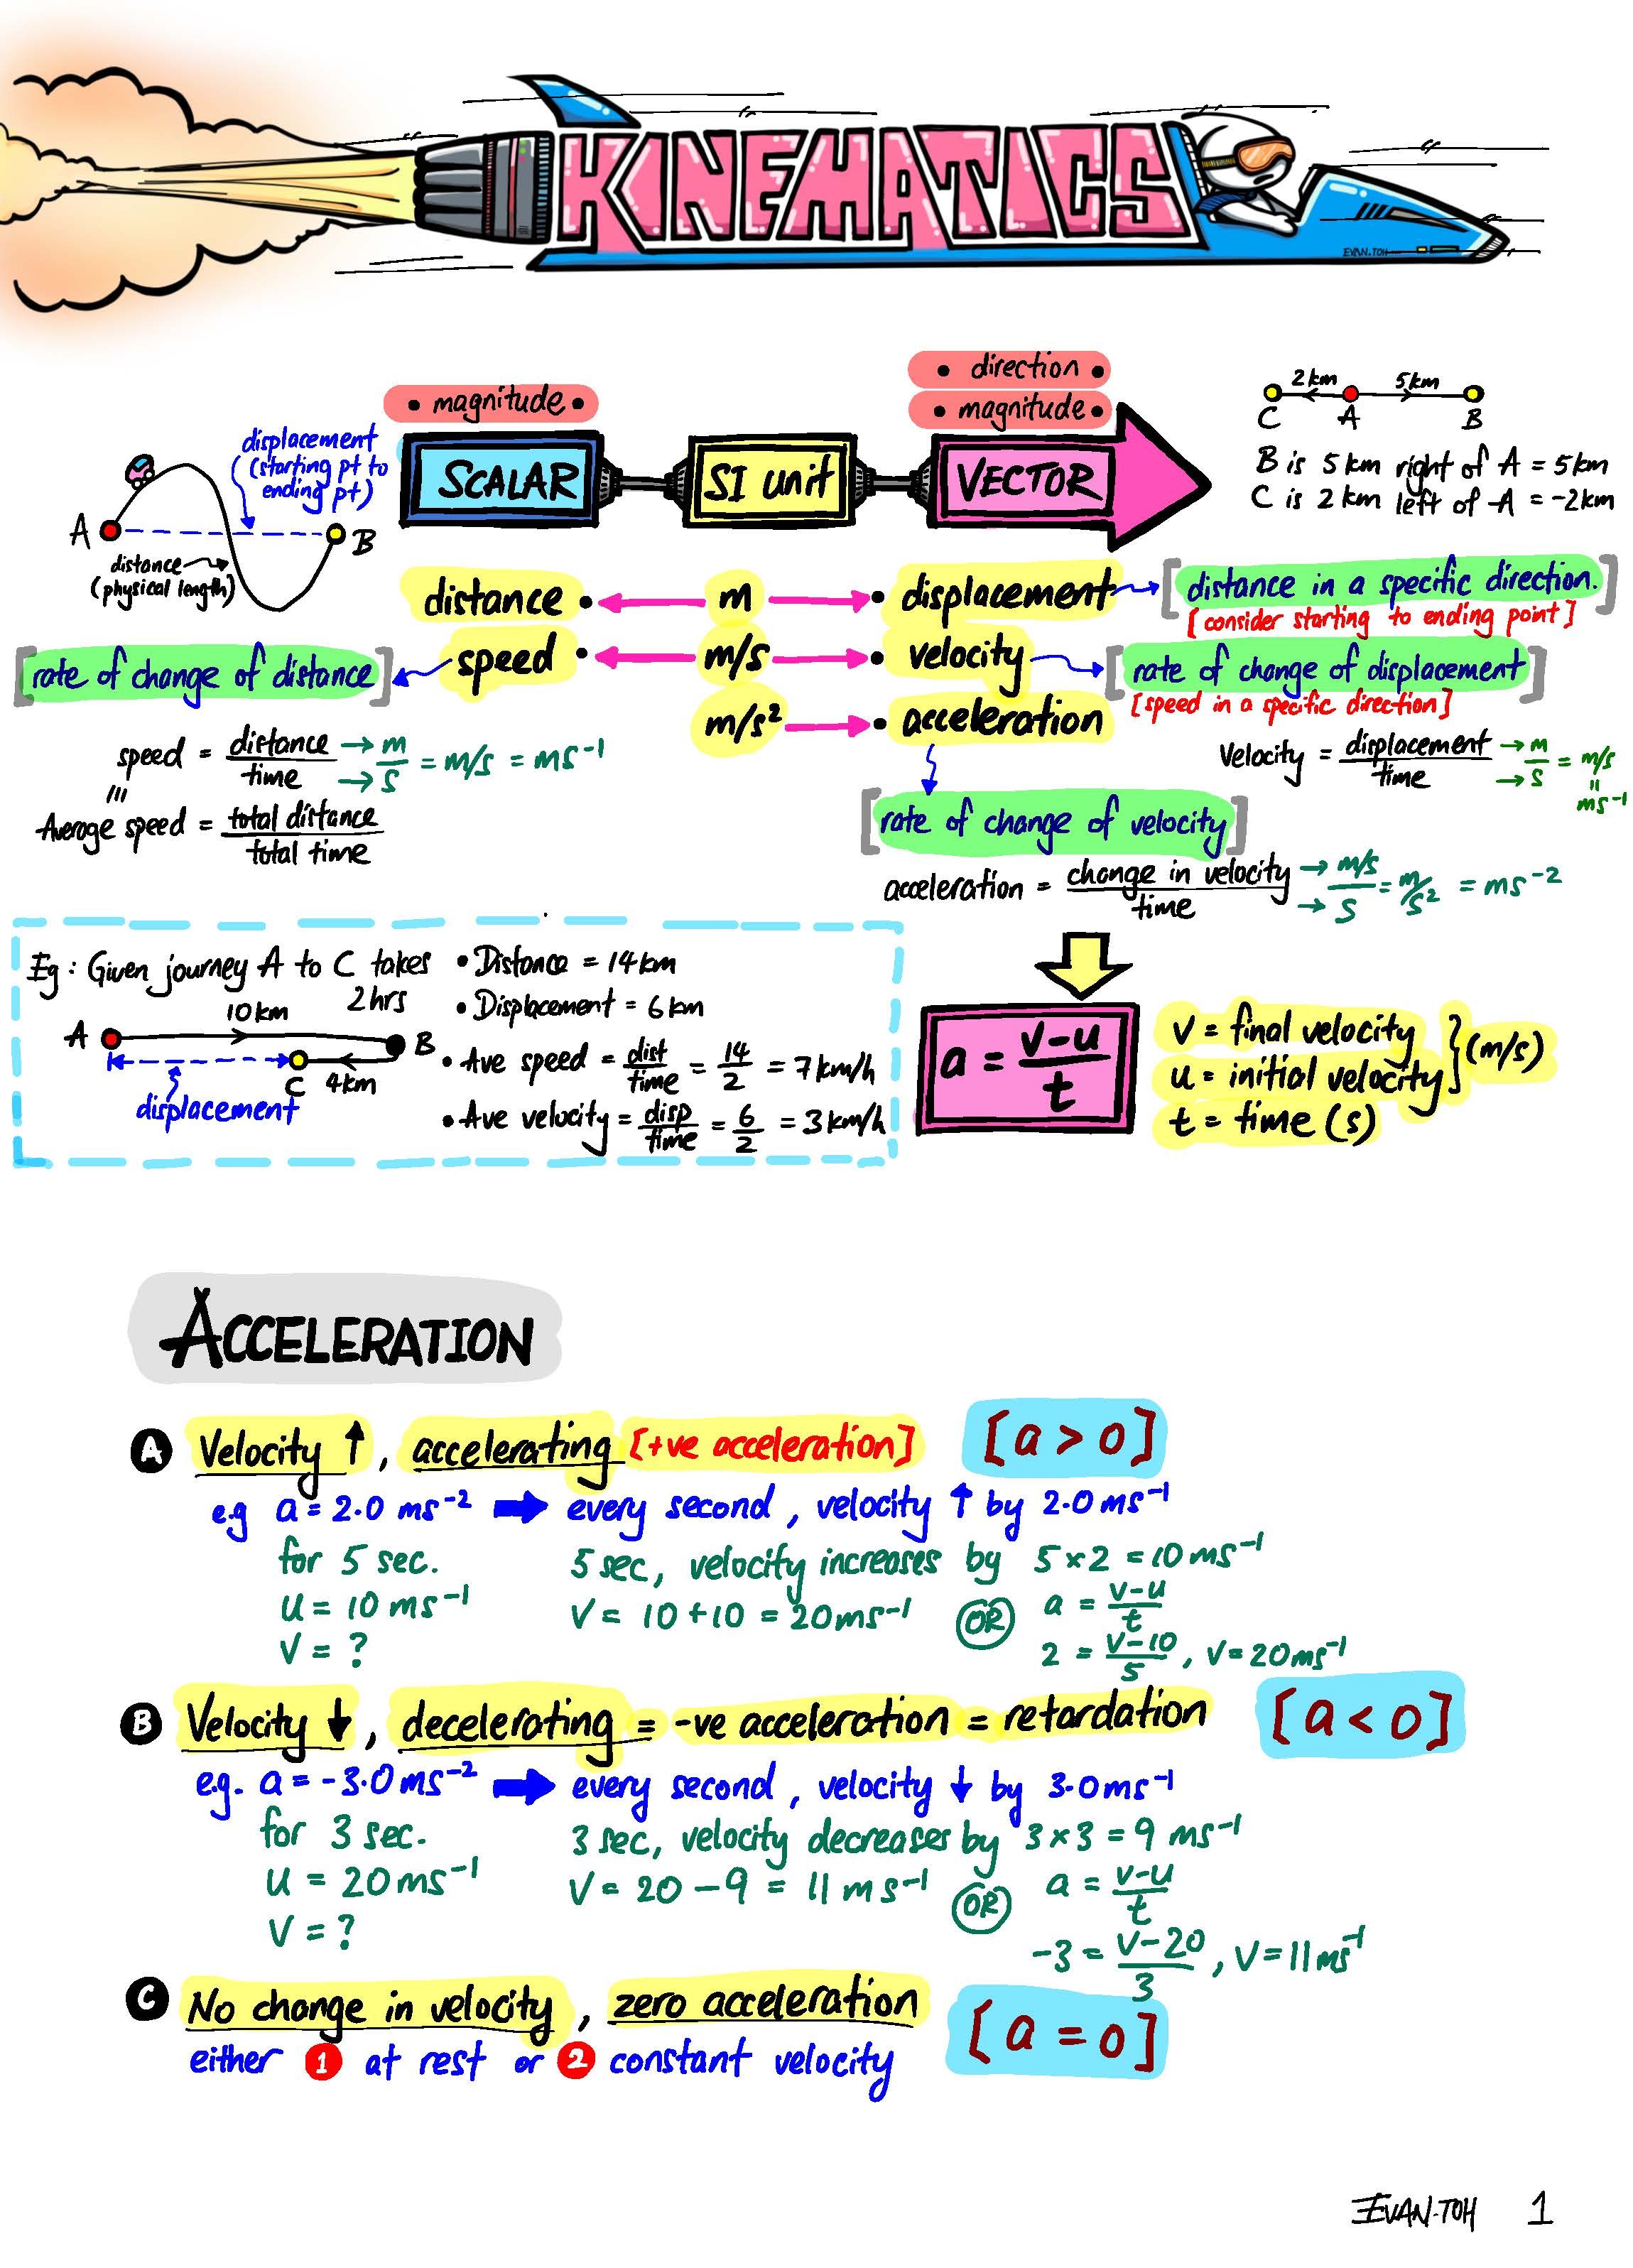 KINEMATICS
EVAN.TOH
• magnitude •
• direction •
• magnitude •
SCALAR
SI unit
VECTOR
2km 5km
C A B
B is 5km right of A = 5km
C is 2km left of A = -2km
displacement
(starting pt to
ending pt)
A B
distance
(physical length)
distance • m • displacement
[distance in a specific direction.]
[consider starting to ending point]
speed • m/s • velocity
[rate of change of distance]
[rate of change of displacement]
[speed in a specific direction]
m/s² • acceleration
speed = distance/time → m → s = m/s = ms⁻¹
≡
Average speed = total distance/total time
Velocity = displacement/time → m → s = m/s
=
ms⁻¹
[rate of change of velocity]
acceleration = change in velocity/time → m/s → s = m/s² = ms⁻²
Eg: Given journey A to C takes
2hrs
10km
A B
C 4km
displacement
• Distance = 14km
• Displacement = 6km
• Ave speed = dist/time = 14/2 = 7km/h
• Ave velocity = disp/time = 6/2 = 3km/h
a = v-u/t
V = final velocity
u = initial velocity } (m/s)
t = time (s)
ACCELERATION
A Velocity ↑, accelerating [+ve acceleration] [a > 0]
e.g a = 2.0 ms⁻² ➡ every second, velocity ↑ by 2.0ms⁻¹
for 5 sec. 5sec, velocity increases by 5×2 = 10ms⁻¹
u = 10ms⁻¹ V = 10+10 = 20ms⁻¹ OR a = v-u/t
V = ? 2 = v-10/5, V=20ms⁻¹
B Velocity ↓, decelerating = -ve acceleration = retardation [a < 0]
e.g. a = -3.0ms⁻² ➡ every second, velocity ↓ by 3.0ms⁻¹
for 3 sec. 3sec, velocity decreases by 3×3 = 9 ms⁻¹
u = 20ms⁻¹ V = 20 - 9 = 11ms⁻¹ OR a = v-u/t
V = ? -3 = v-20/3, V=11ms⁻¹
C No change in velocity, zero acceleration [a = 0]
either 1 at rest or 2 constant velocity
EVAN.TOH 1